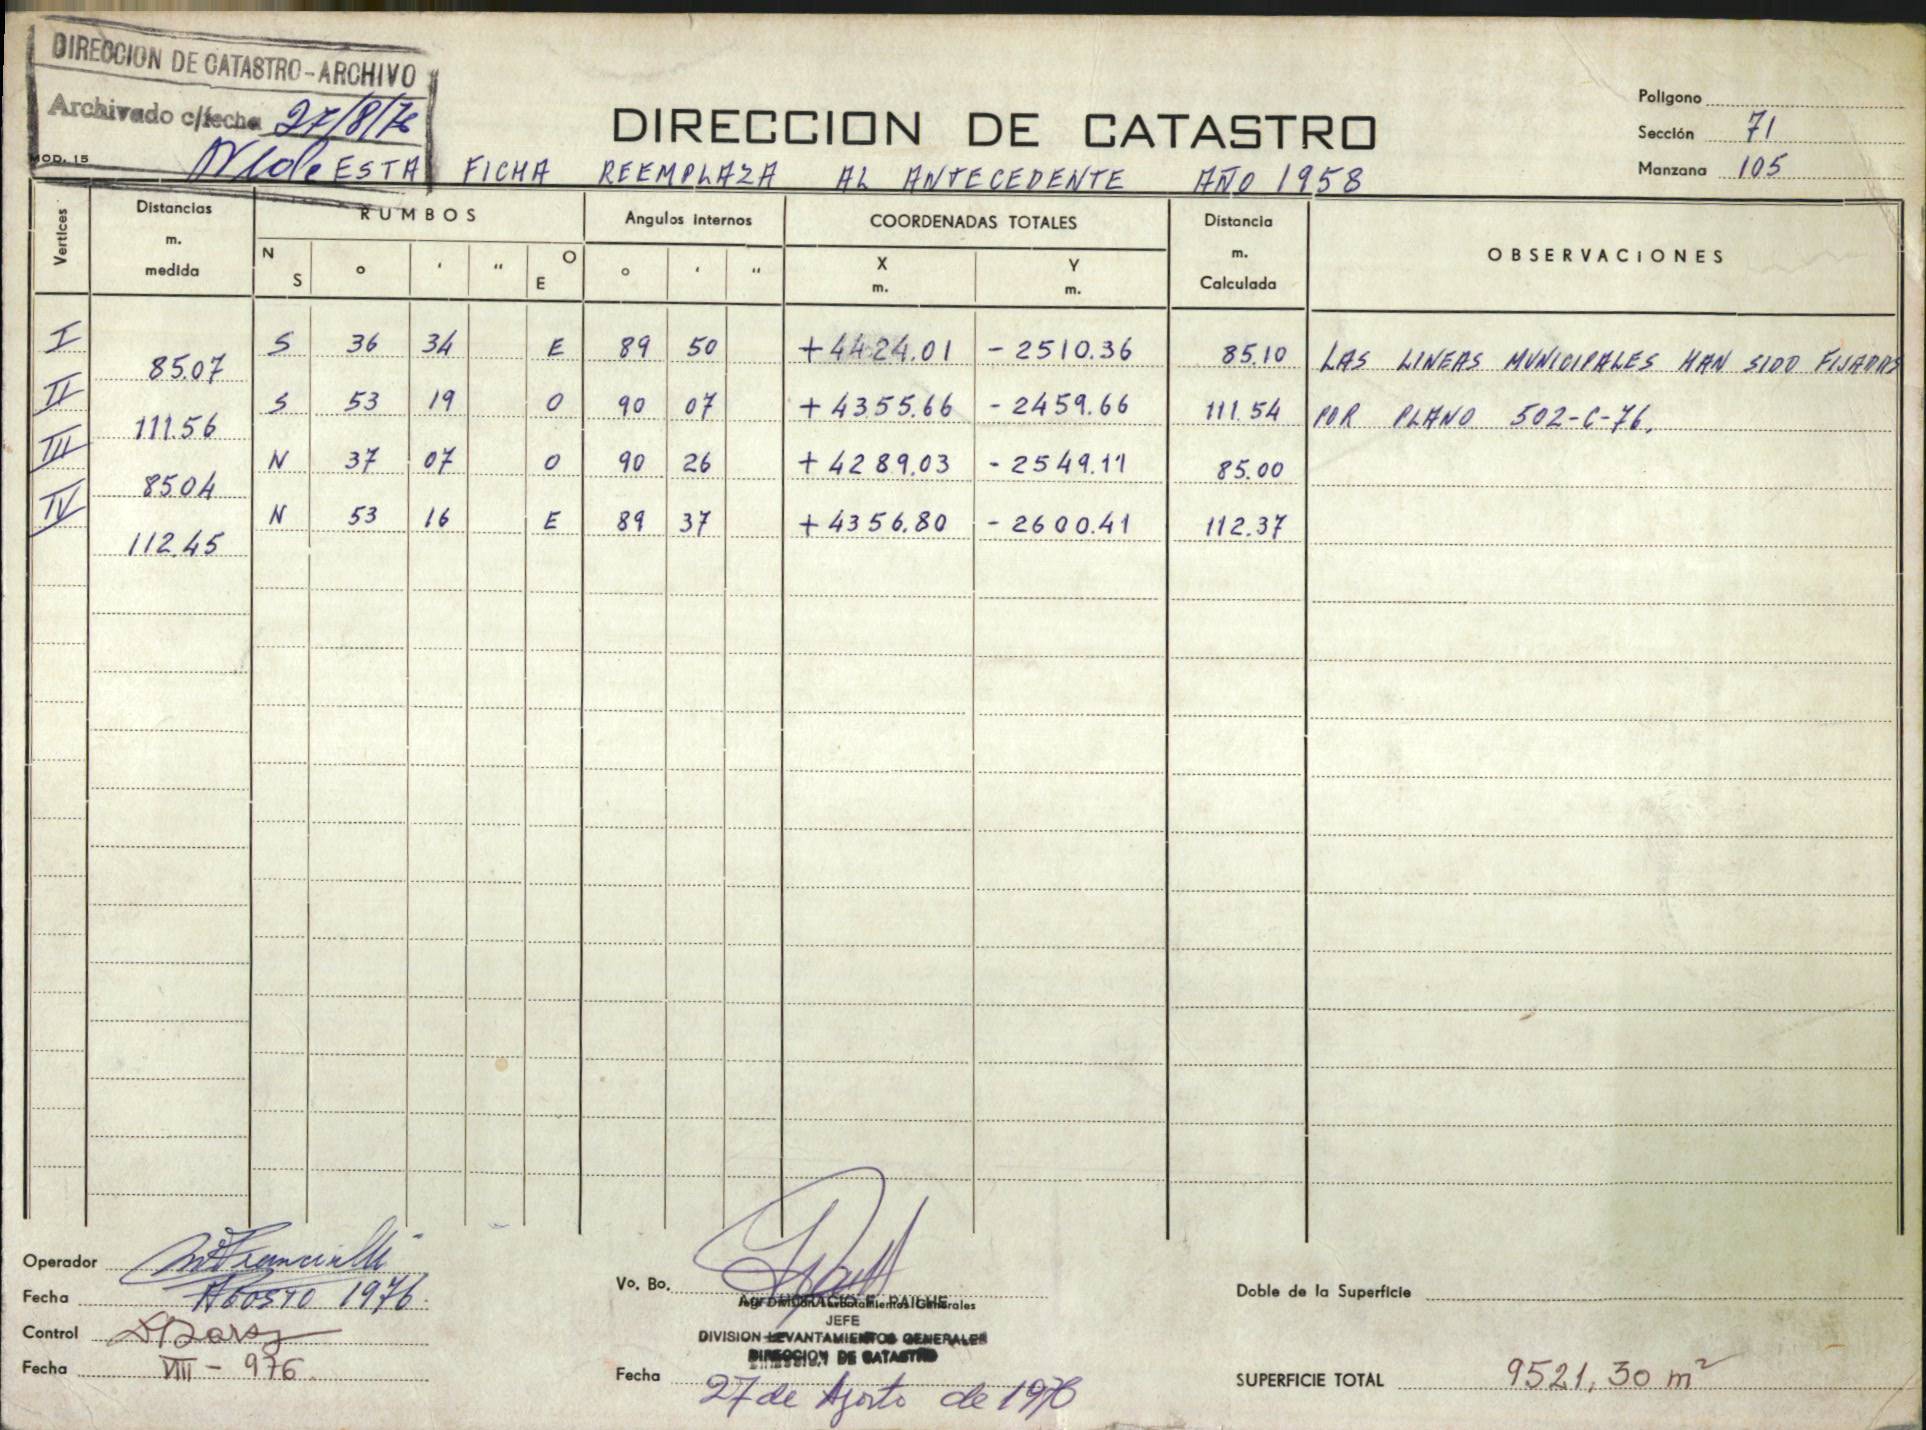 DIRECCION DE CATASTRO - ARCHIVO
Archivado c/fecha 27/8/76
MOD. 15
DIRECCION DE CATASTRO
Polígono
Sección 71
Manzana 105
ESTA FICHA REEMPLAZA AL ANTECEDENTE AÑO 1958
Vertices Distancias m. medida RUMBOS Angulos internos COORDENADAS TOTALES Distancia m. Calculada OBSERVACIONES
N S ° ' " O E ° ' " X m. Y m.
I S 36 34 E 89 50 +4424.01 -2510.36 85.10 LAS LINEAS MUNICIPALES HAN SIDO FIJADAS
85.07
II S 53 19 O 90 07 +4355.66 -2459.66 111.54 POR PLANO 502-C-76.
111.56
III N 37 07 O 90 26 +4289.03 -2549.11 85.00
85.04
IV N 53 16 E 89 37 +4356.80 -2600.41 112.37
112.45
Operador
Fecha AGOSTO 1976.
Control
Fecha VIII - 976.
Vo. Bo.
JEFE
DIVISION LEVANTAMIENTOS GENERALES
DIRECCION DE CATASTRO
Fecha 27 de Agosto de 1976
Doble de la Superficie
SUPERFICIE TOTAL 9521,30 m²